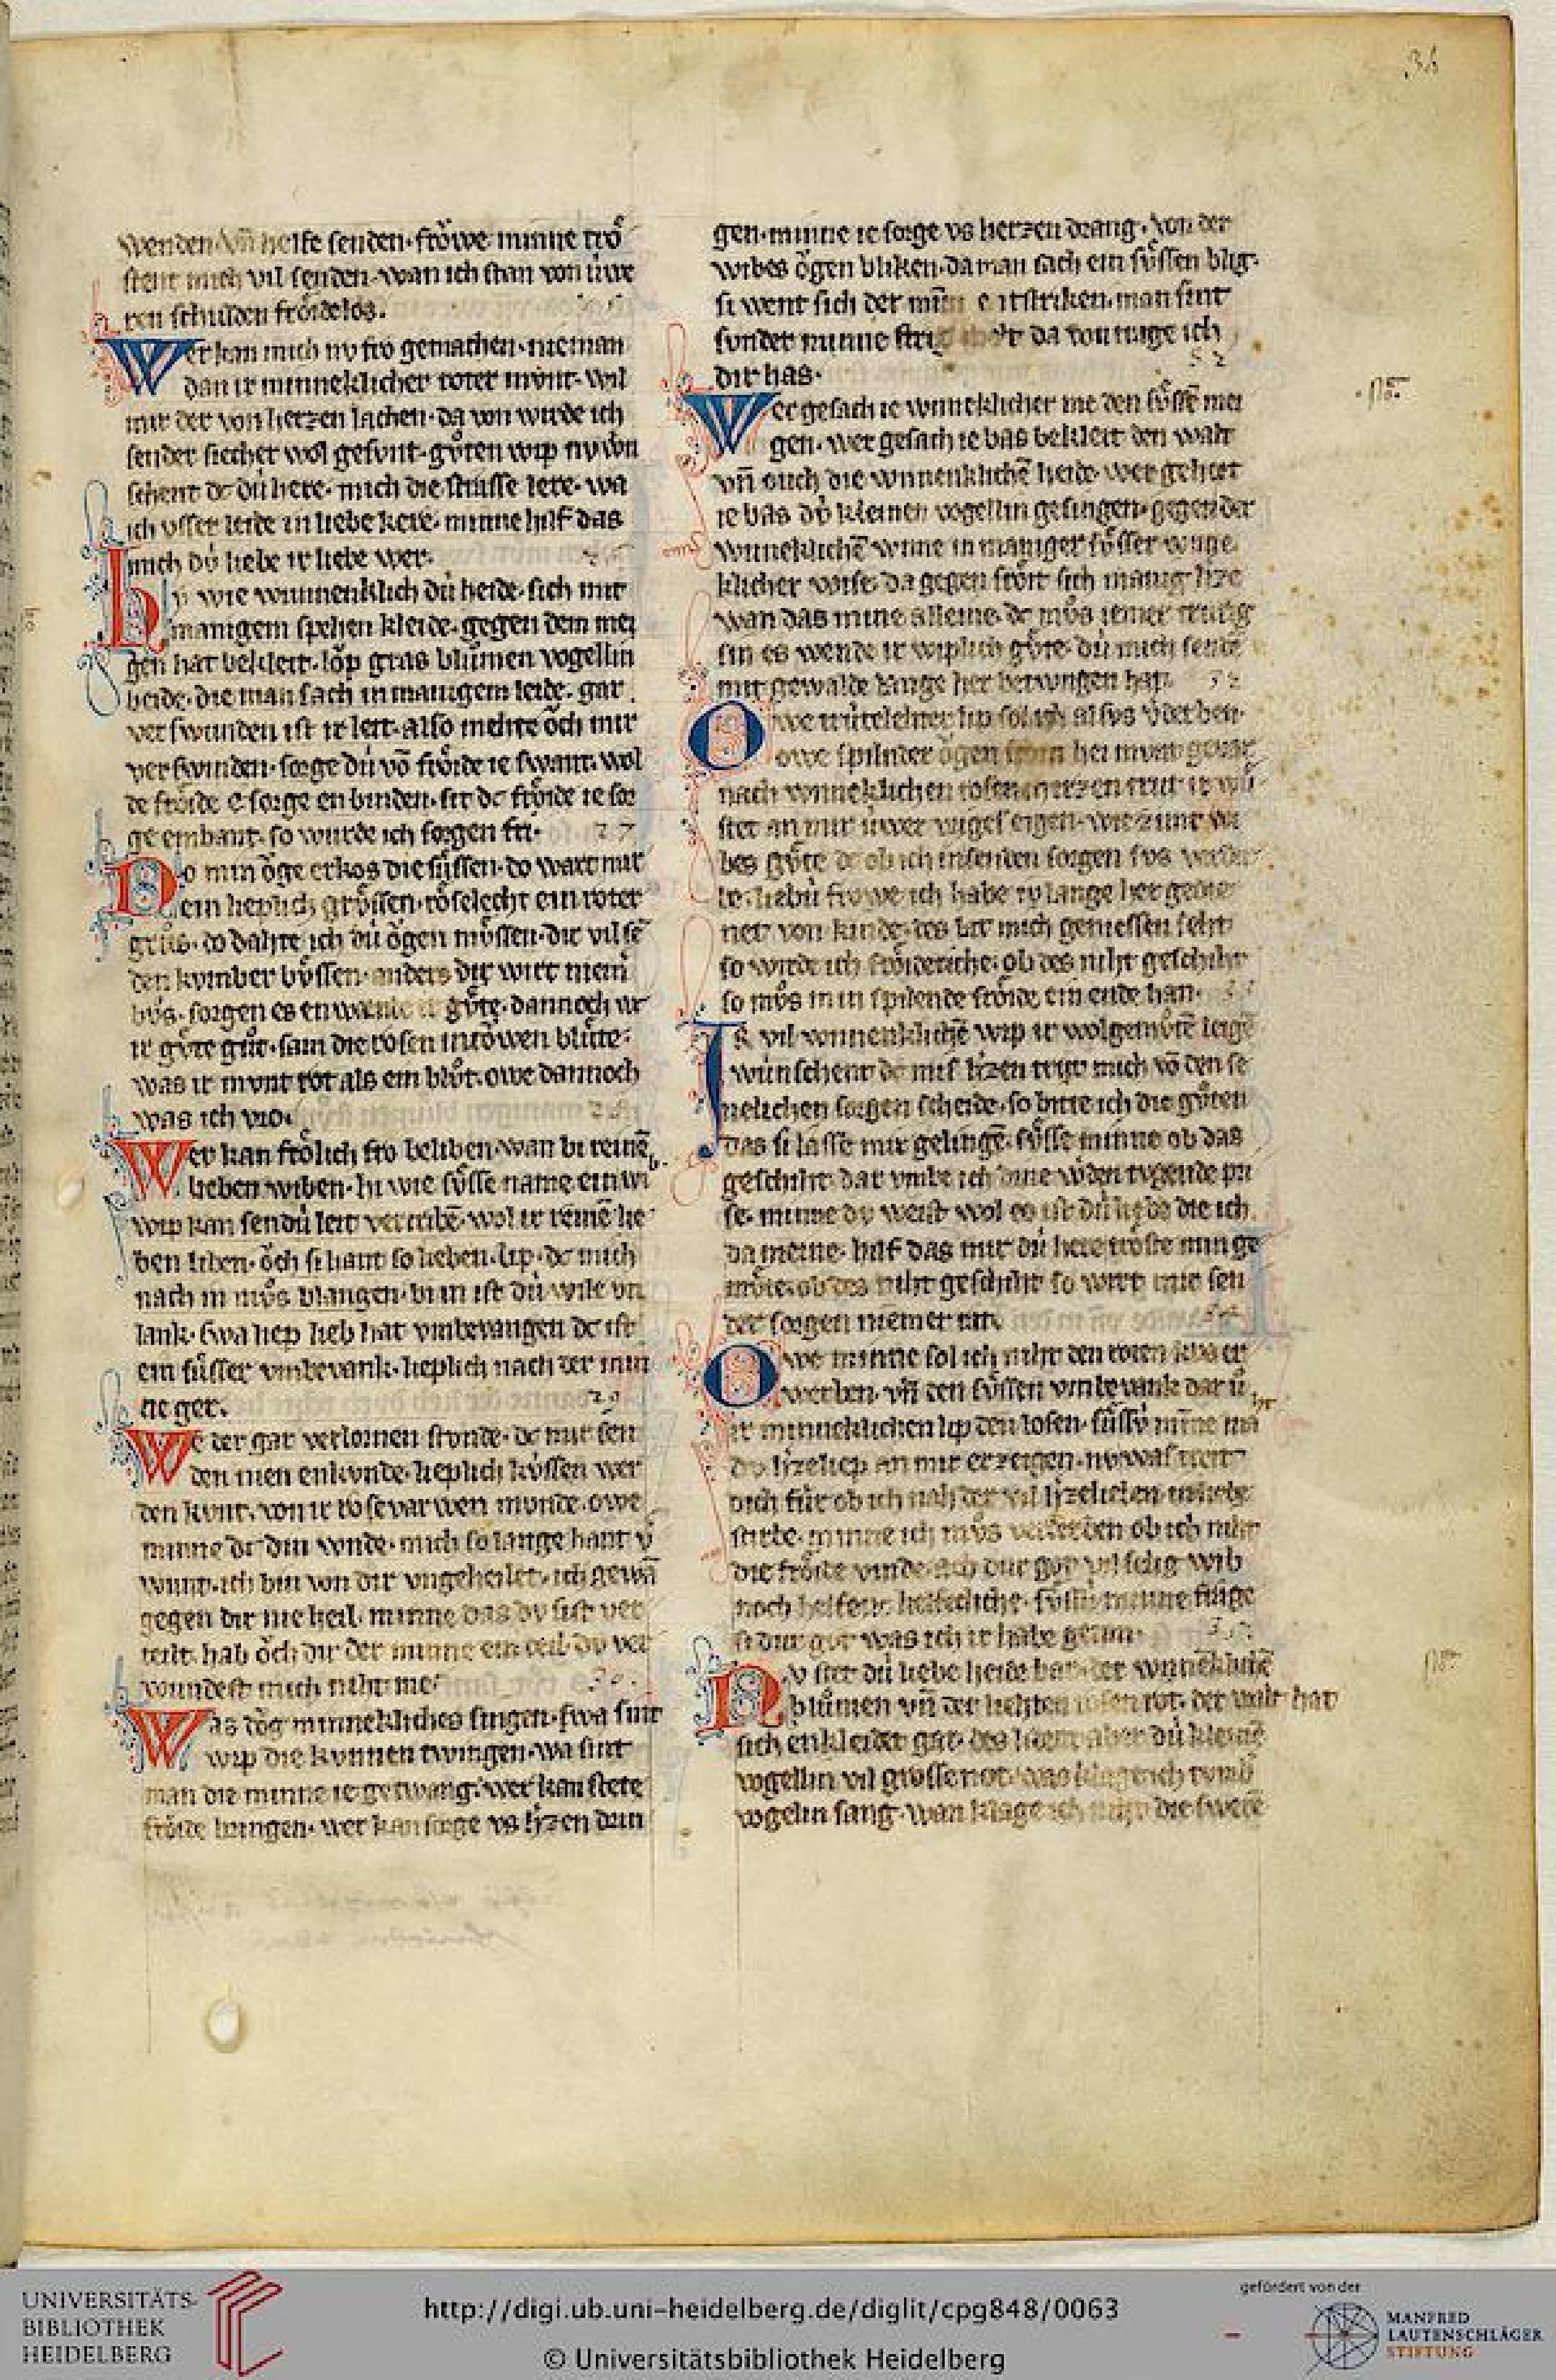 36
wenden. vn̄ helfe senden. frōwe minne trö
stent mich vil senden. wan ich stan von úwe
ren schulden frōidelos.
Wer kan mich nv fro gemachen. nieman
dan ir minneklicher roter mvnt. wil
mir der von herzen lachen. da von wirde ich
sender siecher wol gesvnt. gv̊ten wip nv wn̄
schent dc dú here. mich die strasse lere. wa
ich vsser leide in liebe kere. minne hilf das
mich dú liebe ir liebe wer.
Hy wie wunnenklich dú heide. sich mit
manigem spehen kleide. gegen dem mei
gen hat bekleit. lōp gras blůmen vogellin
beide. die man sach in manigem leide. gar
verswunden ist ir leit. also mehte ōch mir
verswinden. sorge dú vō frōide ie swant. wol
de frōide e sorge enbinden. sit dc frōide ie sor
ge embant. so wurde ich sorgen fri. 27
Do min ōge erkos die sůssen. do wart mir
ein lieplich grůssen. rōselecht ein roter
grůs. do dahte ich dú ōgen mv̊ssen. dir vil sē
den kvmber bv̊ssen. anders dir wirt niem̄
bv̊s. sorgen es enwante ir gv̊te. dannoch w
ir gv̊te gůt. sam die rosen in tōwen blůte.
was ir mvnt rot als ein blůt. owe dannoch
was ich vro.
Wer kan frōlich fro beliben. wan bi reinē
lieben wiben. hi wie sv̊sse name ein wi b.
wip kan sendú leit vertribē. wol ir reinē lie
ben liben. ōch si hant so lieben lip. dc mich
nach in mv̊s blangen. bi in ist dú wile vn
lank. swa liep lieb hat vmbevangen dc ist
ein sůsser vmbevank. lieplich nach der min
ne ger. 29
We der gar verlornen stvnde. dc mir sen
den nien enkvnde. lieplich kv̊ssen wer
den kvnt. von ir rosevarwen mvnde. owe
minne dc din wnde. mich so lange hant v̓
wunt. ich bin von dir vngeheilet. ich gewā
gegen dir nie heil. minne das dv sist ver
teilt. hab ōch dir der minne ein teil. dv ver
wundest mich niht me. 30.
Was tōg minnekliches singen. swa sint
wip die kvnnen twingen. wa sint
man die minne ie getwang. wer kan stete
frōide bringen. wer kan sorge vs h̓zen drin
gen. minne ie sorge vs herzen drang. von der
wibes ōgen bliken. da man sach ein sv̊ssen blig.
si went sich der min entstriken. man sint
sunder minne da von trage ich
dir has. 32
Wer gesach ie wnneklicher me den sv̊ssē mei
gen. wer gesach ie bas bekleit den walt
vn̄ ouch die wnnenklichē heide. wer gehort
ie bas dú kleinen vogellin gesingen. gegen der
wnneklichē wnne in maniger sv̊sser wnne
klicher wise. da gegen frōit sich manig h̓ze
wan das mine alleine. dc mv̊s iemer trurig
sin es wende ir wiplich gv̊te. dú mich sende
mit gewalde lange her betwngen hat. 32
Owe trutelehter lip sol ich alsvs v̓derben.
owe spilnder ōgen her mvnt gevar
nach wnneklichen rosen
ster an mir úwer
bes gv̊te dc ob ich in senden sorgen svs verder
be. liebú frowe ich habe vch lange her gedie
net von kinde. des lat mich geniessen seht
so wirde ich frōiderich. ob des niht geschiht
so mv̊s min spilende frōide ein ende han.
Ir vil wnnenklichē wip ir wolgemv̊tē leigē
wúnschent dc mis h̓zen trut mich vō den se
nelichen sorgen scheide. so bitte ich die gv̊ten
das si lasse mir gelingē. sv̊sse minne ob das
geschiht. dar vmbe ich dine werden tvgende pri
se. minne dv weist wol es ist dú liebe die ich
da meine. hilf das mir dú here trōste min ge
mv̊te. ob des niht geschiht so wirt mir sen
der sorgen niemer rat.
Owe minne sol ich niht den roten kvs er
werben. vn̄ den sv̊ssen vmbevank dar ů
ir minneklichen lip den losen. sv̊ssú minne ma
dv h̓zeliep an mir erzeigen. nv was treit
dich fúr ob ich nah der vil h̓zelieben
stirbe. minne ich mv̊s verderben ob ich niht
die frōide vinde. ach dur got vil selig wib
noch helfent helfecliche. sv̊ssú minne frage
si dur got was ich ir habe getan.
Nv stet dú liebe heide bar. der wnnēklichē
blůmen vn̄ der liehten rosen rot. der walt hat
sich enkleidet gar. des hant aber dú kleinē
vogellin vil grosse not. was klage ich tvmb̓
vogelin sang. wan klage ich niht die swere
UNIVERSITÄTS-
BIBLIOTHEK
HEIDELBERG
http://digi.ub.uni-heidelberg.de/diglit/cpg848/0063
© Universitätsbibliothek Heidelberg
gefördert von der
MANFRED
LAUTENSCHLÄGER
STIFTUNG